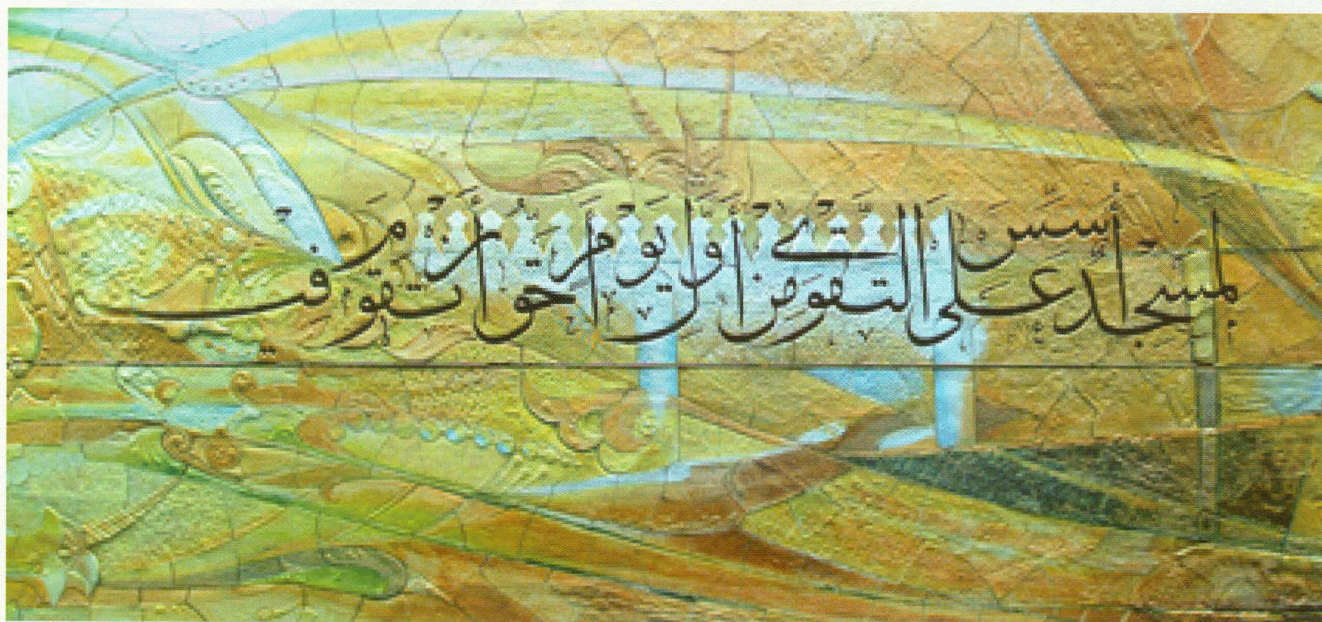 لمسجد أسّس على التقوى من أوّل يوم أحقّ أن تقوم فيه